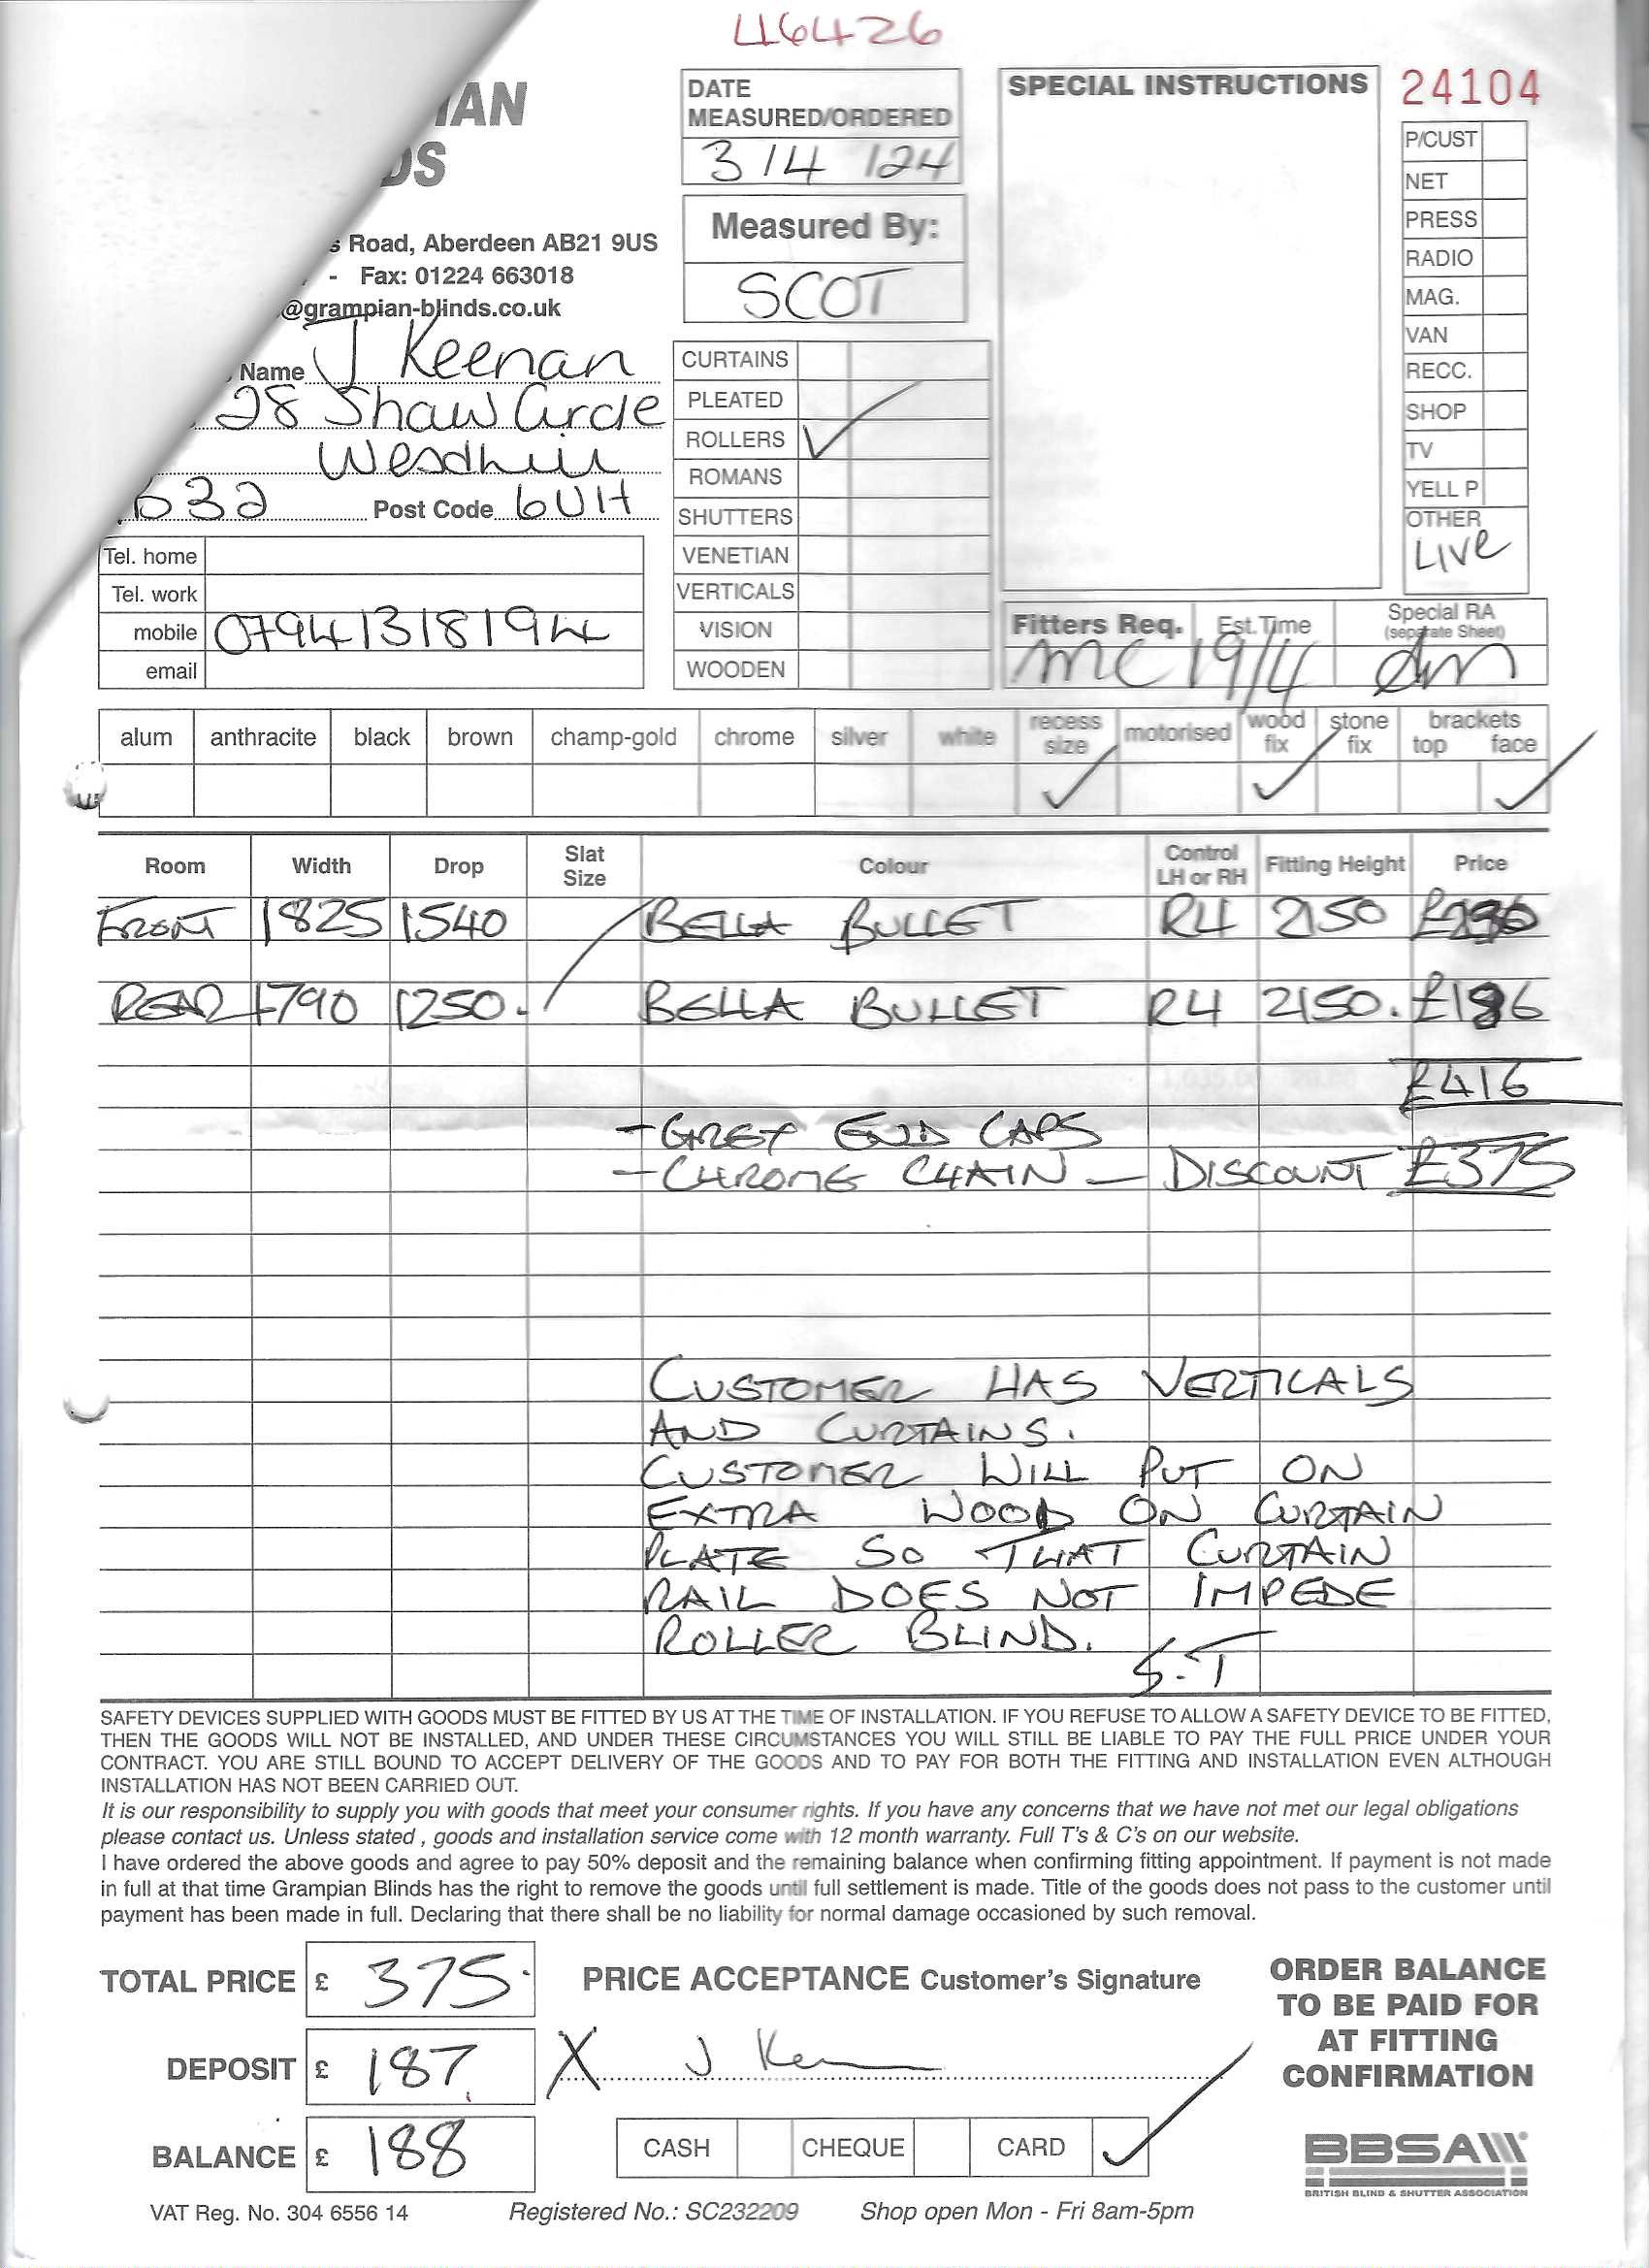 46426
IAN
DS
DATE
MEASURED/ORDERED
3/4/24
SPECIAL INSTRUCTIONS
24104
P/CUST
NET
PRESS
RADIO
MAG.
VAN
RECC.
SHOP
TV
YELL P
OTHER
Live
Road, Aberdeen AB21 9US
- Fax: 01224 663018
@grampian-blinds.co.uk
Measured By:
SCOT
Name J Keenan
28 Shaw Circle
Westhill
B32 Post Code 6UH
Tel. home
Tel. work
mobile 07941318194
email
CURTAINS
PLEATED
ROLLERS ✓
ROMANS
SHUTTERS
VENETIAN
VERTICALS
VISION
WOODEN
Fitters Req. Est.Time Special RA
(separate Sheet)
MC 19/4
alum anthracite black brown champ-gold chrome silver white recess size motorised wood fix stone fix brackets top face
✓ ✓ ✓
Room Width Drop Slat Size Colour Control LH or RH Fitting Height Price
FRONT 1825 1540 BELLA BULLET R4 2150
REAR 1790 1250. BELLA BULLET R4 2150. £186
£416
- GREY END CAPS
- CHROME CHAIN - DISCOUNT £375
CUSTOMER HAS VERTICALS
AND CURTAINS.
CUSTOMER WILL PUT ON
EXTRA WOOD ON CURTAIN
PLATE SO THAT CURTAIN
RAIL DOES NOT IMPEDE
ROLLER BLIND.
S.T
SAFETY DEVICES SUPPLIED WITH GOODS MUST BE FITTED BY US AT THE TIME OF INSTALLATION. IF YOU REFUSE TO ALLOW A SAFETY DEVICE TO BE FITTED,
THEN THE GOODS WILL NOT BE INSTALLED, AND UNDER THESE CIRCUMSTANCES YOU WILL STILL BE LIABLE TO PAY THE FULL PRICE UNDER YOUR
CONTRACT. YOU ARE STILL BOUND TO ACCEPT DELIVERY OF THE GOODS AND TO PAY FOR BOTH THE FITTING AND INSTALLATION EVEN ALTHOUGH
INSTALLATION HAS NOT BEEN CARRIED OUT.
It is our responsibility to supply you with goods that meet your consumer rights. If you have any concerns that we have not met our legal obligations
please contact us. Unless stated , goods and installation service come with 12 month warranty. Full T's & C's on our website.
I have ordered the above goods and agree to pay 50% deposit and the remaining balance when confirming fitting appointment. If payment is not made
in full at that time Grampian Blinds has the right to remove the goods until full settlement is made. Title of the goods does not pass to the customer until
payment has been made in full. Declaring that there shall be no liability for normal damage occasioned by such removal.
TOTAL PRICE £ 375.
PRICE ACCEPTANCE Customer's Signature
DEPOSIT £ 187.
X J Keenan
BALANCE £ 188
CASH CHEQUE CARD ✓
ORDER BALANCE
TO BE PAID FOR
AT FITTING
CONFIRMATION
BBSA
BRITISH BLIND & SHUTTER ASSOCIATION
VAT Reg. No. 304 6556 14
Registered No.: SC232209
Shop open Mon - Fri 8am-5pm